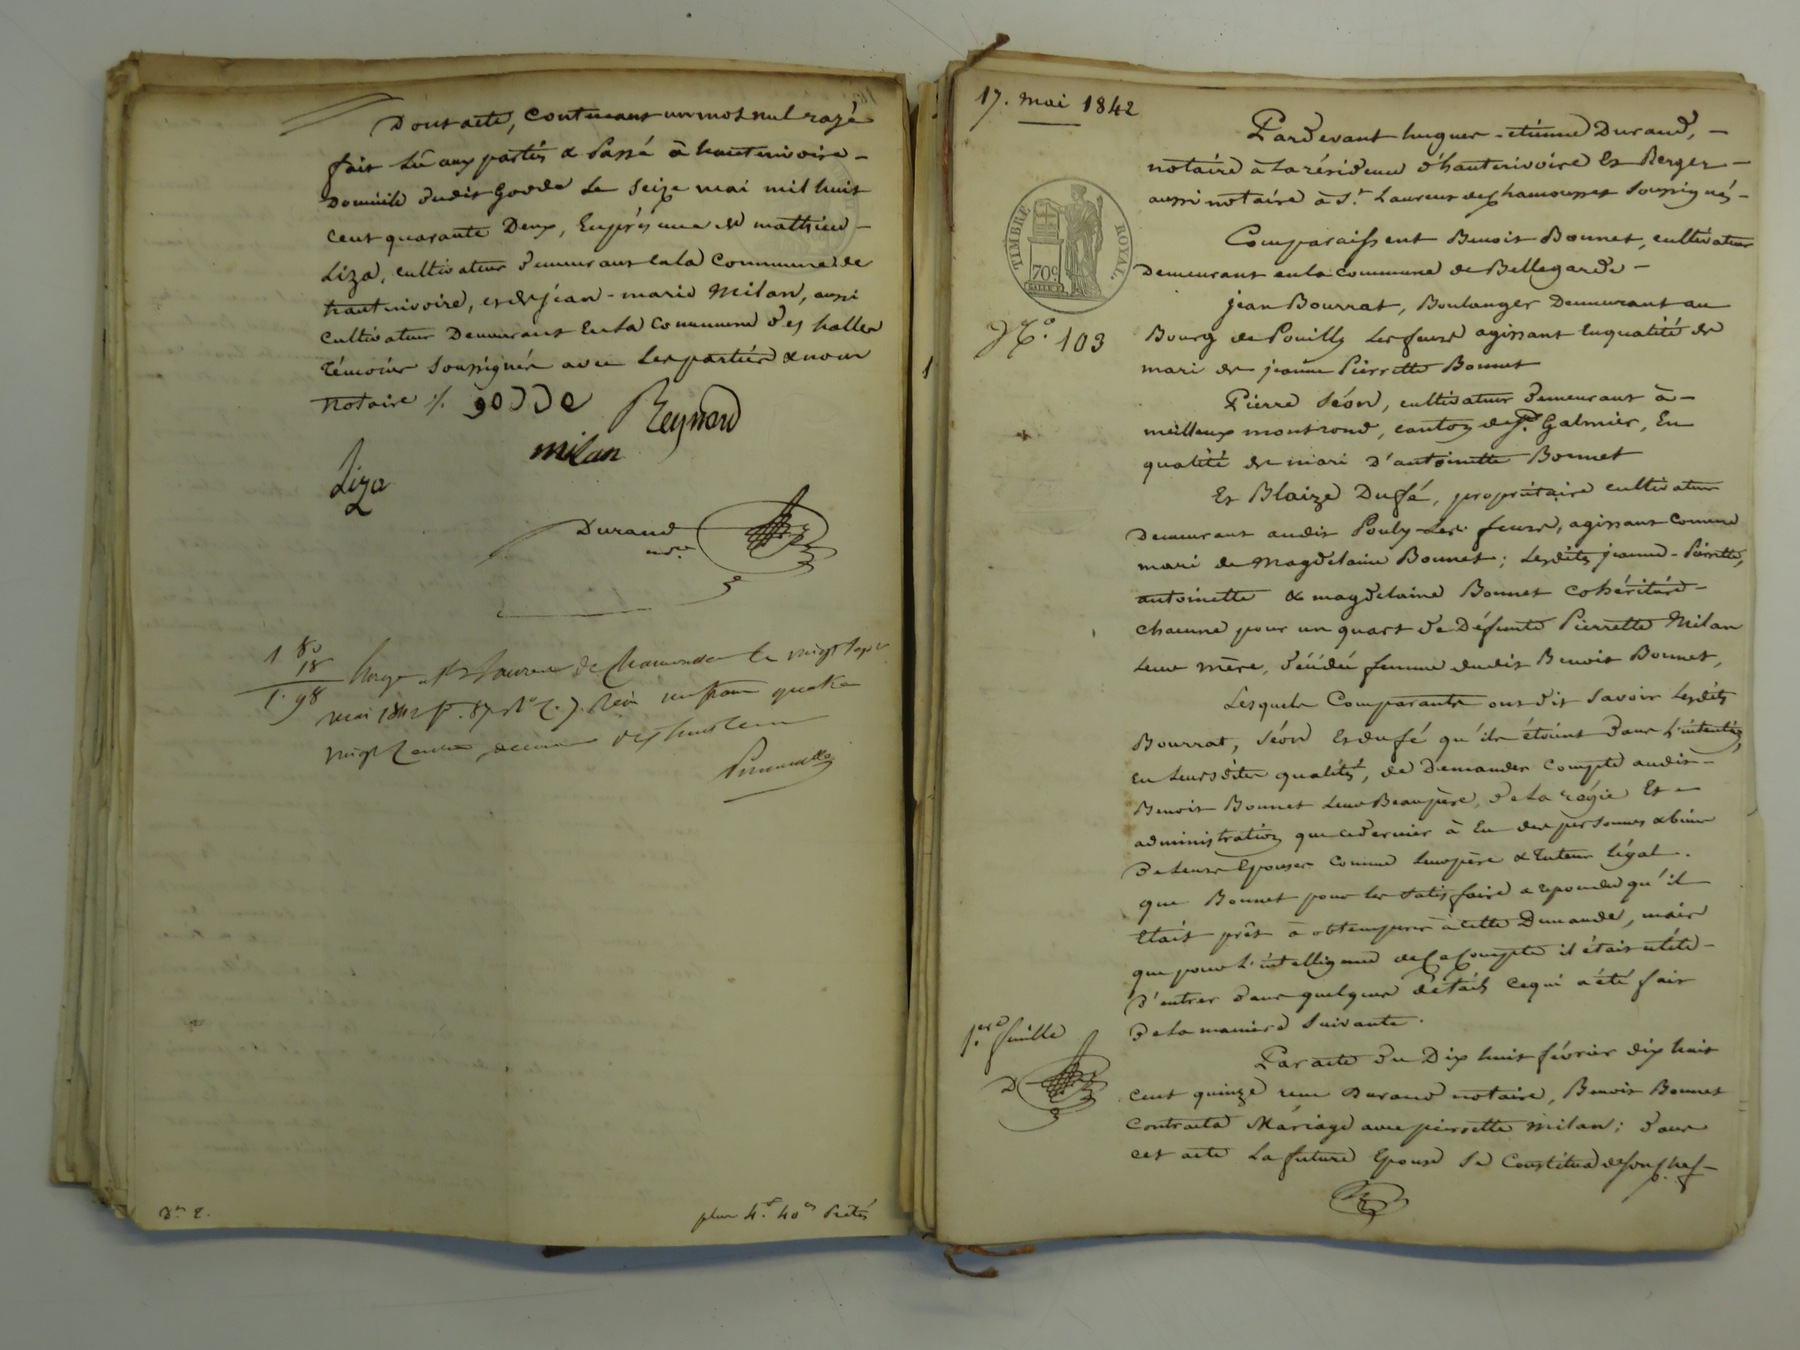 Dont acte, contenant un mot nul rayé
fait lû aux parties & Passé à hauterivoire –
Domicile dudit Godde le seize mai mil huit
cent quarante Deux, En présence de mathieu –
Liza, cultivateur demeurant en la Commune de
hauterivoire, et de jean-marie Milan, aussi
cultivateur Demeurant En la Commune des halles
témoins soussignés avec les parties & nous
notaire ./. godde
Reynard
milan
Liza
Durand
nore
1 80
18
1. 98
Enreg. à St Laurent de Chamousset le vingt sept
mai 1842 f°. 87 Ro c. 7. Reçu un franc quatre
vingt centimes, décime dix huit centimes
3e E.
plus 4f. 40 cs Prêtés
17. mai 1842
TIMBRE ROYAL.
70c
No. 103
Pardevant hugues-etienne Durand, –
notaire à la résidence d'hauterivoire Et Berger –
aussi notaire à St. Laurent de chamousset soussignés –
Comparaissent Benoit Bonnet, cultivateur
Demeurant en la commune de Bellegarde –
jean Bourrat, Boulanger Demeurant au
Bourg de Pouilly les feurs agissant En qualité de
mari de jeanne Pierrette Bonnet
Pierre séon, cultivateur demeurant à –
meilleux montrond, canton de St. Galmier, En
qualité de mari d'antoinette Bonnet
Et Blaize Dufé, propriétaire cultivateur
Demeurant audit Pouly les feurs, agissant comme
mari de Magdelaine Bonnet; lesdites jeanne-Pierrette,
antoinette & magdelaine Bonnet cohéritières –
chacune pour un quart de Défunte Pierrette Milan
leur mère, décédée femme dudit Benoit Bonnet,
Lesquels Comparants ont dit savoir lesdits
Bourrat, séon Et dufé qu'ils étoient dans l'intention,
en leursdites qualités, de Demander compte audit –
Benoit Bonnet leur Beaupère, de la régie Et –
administration que ce dernier à Eu des personnes & biens
de leurs Epouses comme leur père & tuteur légal.
que Bonnet pour les satisfaire a repondu qu'il
Etait prêt à obtempérer à cette Demande, mais
que pour l'intelligence de Ce Compte il était utile –
d'entrer dans quelques détails ce qui a été fait
de la manière suivante.
1.ere feuille
D
Par acte du Dix huit février dix huit
cent quinze reçu Durand notaire, Benoit Bonnet
contracta Mariage avec pierrette milan; dans
cet acte la future Epouse se Constitua de son chef –